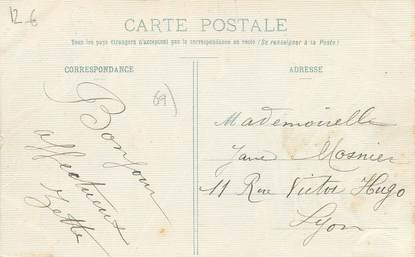 12-6
CARTE POSTALE
Tous les pays étrangers n'acceptent pas la correspondance au recto (Se renseigner à la Poste)
CORRESPONDANCE
ADRESSE
69)
Bonjour
affectueux
Zette
Mademoiselle
Jane Mosnier
11 Rue Victor Hugo
Lyon